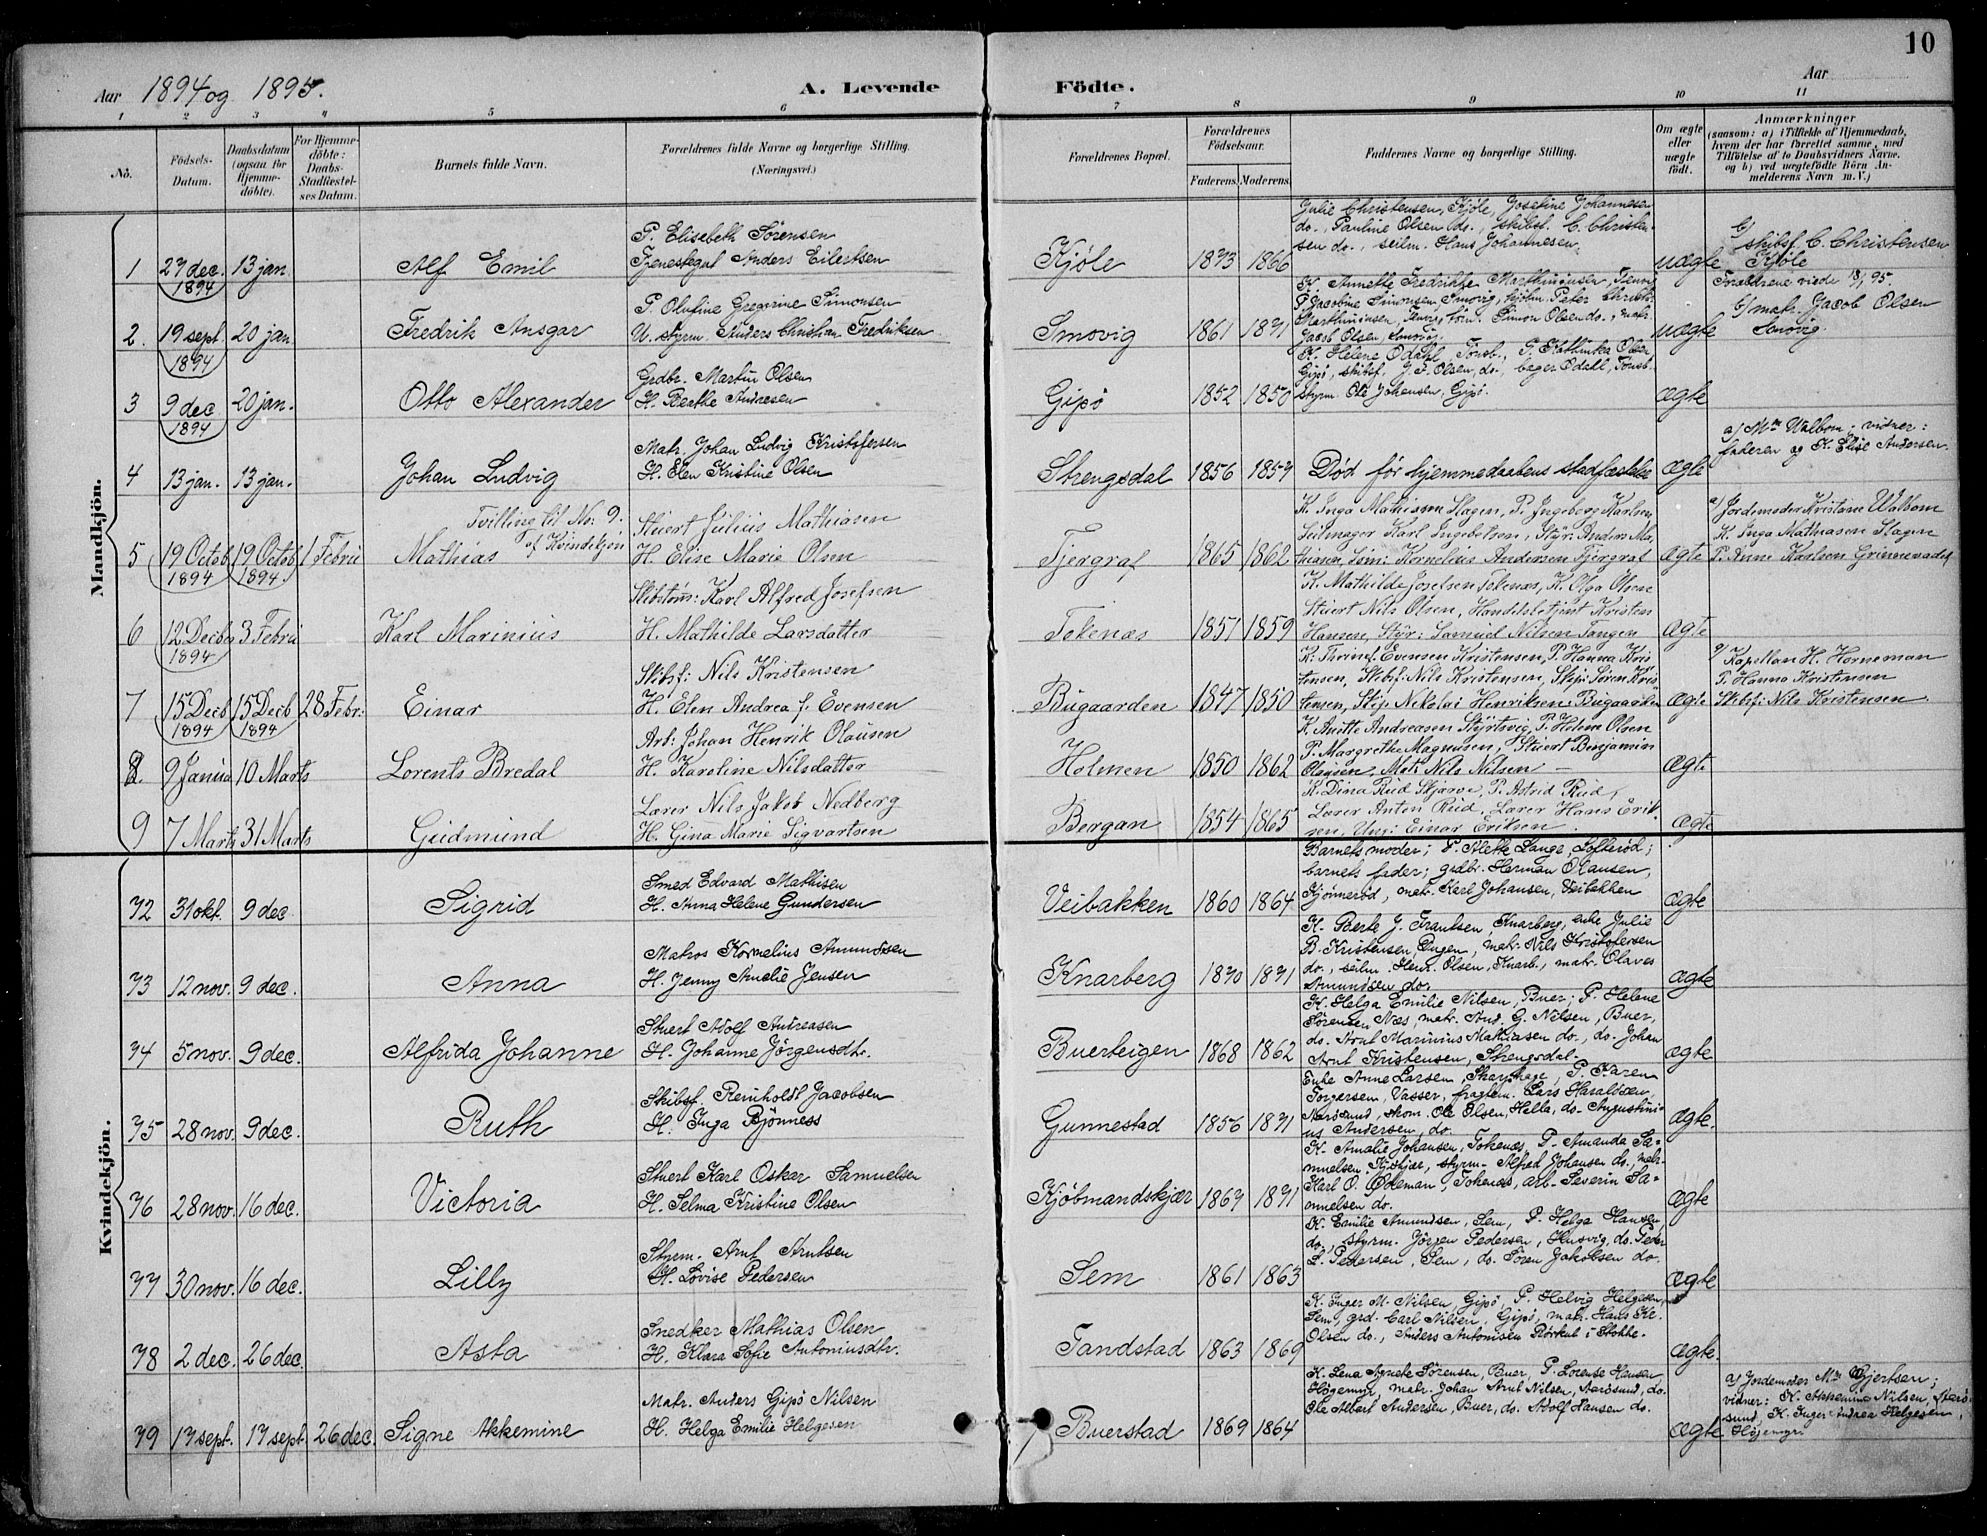 10
Aar 1894 og 1895.
A. Levende Födte.
Aar
1 2 3 4 5 6 7 8 9 10 11
No.
Födsels-Datum.
Daabsdatum (ogsaa for Hjemme-döbte).
For Hjemme-döbte: Daabs-Stadfæstel-ses Datum.
Barnets fulde Navn.
Forældrenes fulde Navne og borgerlige Stilling. (Næringsvei.)
Forældrenes Bopæl.
Forældrenes Födselsaar.
Faderens. Moderens.
Faddernes Navne og borgerlige Stilling.
Om ægte eller uægte födt.
Anmærkninger
(saasom: a) i Tilfælde af Hjemmedaab, hvem der har forrettet samme, med Tilföielse af to Daabsvidners Navne. og b) ved uægtefödte Börn An-melderens Navn m. V.)
Mandkjön.
1 27 dec. 1894 13 jan. Alf Emil
P. Elisabeth Sörensen
Tjenestegut Anders Eilertsen
Kjøle 1873 1866
Julie Christensen, Kjøle, Josefine Johannesen
do., Pauline Olsen do., skibsf. C. Christen-
sen do., seilm. Hans Johannesen.
uægte
skibsf. C. Christensen
Kjøle
2. 19 sept. 1894 20 jan. Fredrik Ansgar
P. Olufine Gregorine Simonsen
U. styrm. Anders Christian Fredriksen
Smovig 1861 1871
Jacob Olsen, Smovig.
uægte
Forældrene viede 18/1 95.
b/ matr. Jacob Olsen
Smovig.
3 9 dec 1894 20 jan. Otto Alexander
Grdbr. Martin Olsen
H. Beathe Andresen
Gipø 1852 1850
K. Helene Ødahl, Tönsb., P. Kathinka Olsen
Gipø, skibsf. J. F. Olsen, do., bager Ødahl, Tønsb.
styrm. Ole Johensen, Gipø.
ægte
4 13 jan. 13 jan. Johan Ludvig
Matr. Johan Ludvig Kristofersen
H. Elen Kristine Olsen
Strengsdal 1856 1859
Død før hjemmedaabens stadfæstelse
ægte
a/ Md Walbom; vidner:
faderen og K. Elise Andersen.
5 19 Octob 1894 19 Octob 1894 1 Febru Mathias
Tvilling til No: 9. af Kvindekjön
Stuert Julius Mathiasen
H. Elise Marie Olsen
Fjergraf 1865 1862
K. Inga Mathiasen Slagen, P. Ingeborg Karlsen
Seilmager Karl Ingebretsen, Styr: Anders Ma-
thiasen, Sömd Kornelius Andersen Fjergraf
ægte
a/ Jordemoder Kristiane Walbom
K. Inga Mathiasen Slagen
P. Anne Karlsen Grimmevadet
6 12 Decbr 1894 3 Febru Karl Marinius
Skibstöm: Karl Alfred Josefsen
H. Mathilde Larsdatter
Tokenæs 1857 1859
K. Mathilde Josefsen Tokenæs, K. Olga Olsen
Stuert Nils Olsen, Handelsbetjent Kristens
Hansen, Styr: Samuel Nilsen Tangen
ægte
7 15 Decb 1894 15 Decb 1894 28 Febr: Einar
Skibsf: Nils Kristensen
H. Elen Andrea f. Evensen
Bugaarden 1847 1850
Evensen Kristensen, P. Hanna Kri-
stensen, Skibsf: Nils Kristensen, Skip: Sören Kris-
tensen, Skip Nikolai Henriksen Bugaarden
ægte
a/ Kapellan H. Horneman
P. Hanna Kristensen
Skibsf: Nils Kristensen
8. 9 Janua 10 Marts Lorents Bredal
Arb: Johan Henrik Olausen
H. Karoline Nilsdatter
Holmen 1850 1862
K. Anette Andreasen Styrtsvig, P. Helene Olsen
P. Margrethe Magnusen, Stuert Benjamin
Olausen, Matr Nils Nilsen
ægte
9 7 Marts 31 Marts Gudmund
Lærer Nils Jakob Nedberg
H. Gina Marie Sigvartsen
Bergan 1854 1865
K. Dina Rüd Skjerve, P. Astrid Rüd,
Lærer Anton Rüd, Lærer Hans Erik-
sen, Ung: Einar Eriksen.
ægte
Kvindekjön.
72 31 okt. 9 dec. Sigrid
Smed Edvard Mathisen
H. Anna Helene Gundersen
Veibakken 1860 1864
Barnets moder; P. Alette Lange, Lofterød;
barnets fader; grdbr. Herman Olausen,
Kjønnerød, matr. Karl Johansen, Veibakken
ægte
73 12 nov. 9 dec. Anna
Matros Kornelius Amundsen
H. Jenny Amelie Jensen
Knarberg 1870 1871
K. Berte J. Frantsen, Knarberg, enke Julie
B. Kristensen, Engen, matr. Nils Kristofersen
do., seilm. Henr. Olsen, Knarb., matr. Olaves
Amundsen do.
ægte
74 5 nov. 9 dec. Alfrida Johanne
Stuert Adolf Andreasen
H. Johanne Jörgensdtr.
Buerteigen 1868 1862
K. Helga Emilie Nilsen, Buer; P. Helene
Sörensen Næs, matr. And. G. Nilsen, Buer,
do. Arnt Marinius Mathiasen do., do. Johan
Arnt Kristensen, Strengsdal.
ægte
75 28 nov. 9 dec. Ruth
Skibsf. Reinholdt Jacobsen
H. Inga Bjönness
Gunnestad 1856 1871
Enke Anne Larsen, P. Karen
Torgersen, Vasser, fragtem. Lars Haraldsen,
Aarøsund, skom. Ole Olsen, Hella, do. Augustini-
us Andersen, do.
ægte.
76 28 nov. 16 dec. Victoria
Stuert Karl Oskar Samuelsen
H. Selma Kristine Olsen
Kjöbmandskjær 1869 1871
K. Amalie Johansen, Tokenæs, P. Amanda Sa-
muelsen, styrm. Alfred Johansen do., matr.
Karl O. Ödeman, Tokenæs, arb. Severin Sa-
muelsen do.
ægte
77 30 nov. 16 dec. Lilly
Styrm. Arnt Arntsen
H. Lovise Pedersen
Sem 1861 1863
K. Emilie Amundsen, Sem, P. Helga Hansen,
do., styrm. Jörgen Pedersen, Husvig, do. Peder
L. Pedersen, Sem, do. Sören Jakobsen do.
ægte
78 2 dec. 26 dec. Asta
Snedker Mathias Olsen
H. Klara Sofie Antoniusdtr.
Tandstad 1863 1869
K. Inger M. Nilsen, Gipø, P. Helvig Helgesen,
Sem, grd. Carl Nilsen, Gipø, matr. Hans Kr.
Olsen do., Anders Antonisen Rörkul i Stokke.
ægte.
79 17 sept. 17 sept. 26 dec. Signe Akkemine
Matr. Anders Gipø Nilsen
H. Helga Emilie Helgesen
Buerstad 1869 1864
K. Lena Agnete Sørensen, Buer, P. Lorense Hansen,
matr. Johan Arnt Nilsen, Aarøsund, do.
Ole Albert Andersen, Buer, do. Adolf Hansen do.
ægte
a/ Jordemoder Md Gjertsen;
vidner: K. Akkemine Nilsen, Aarø-
sund, K. Inger Andrea Helgesen,